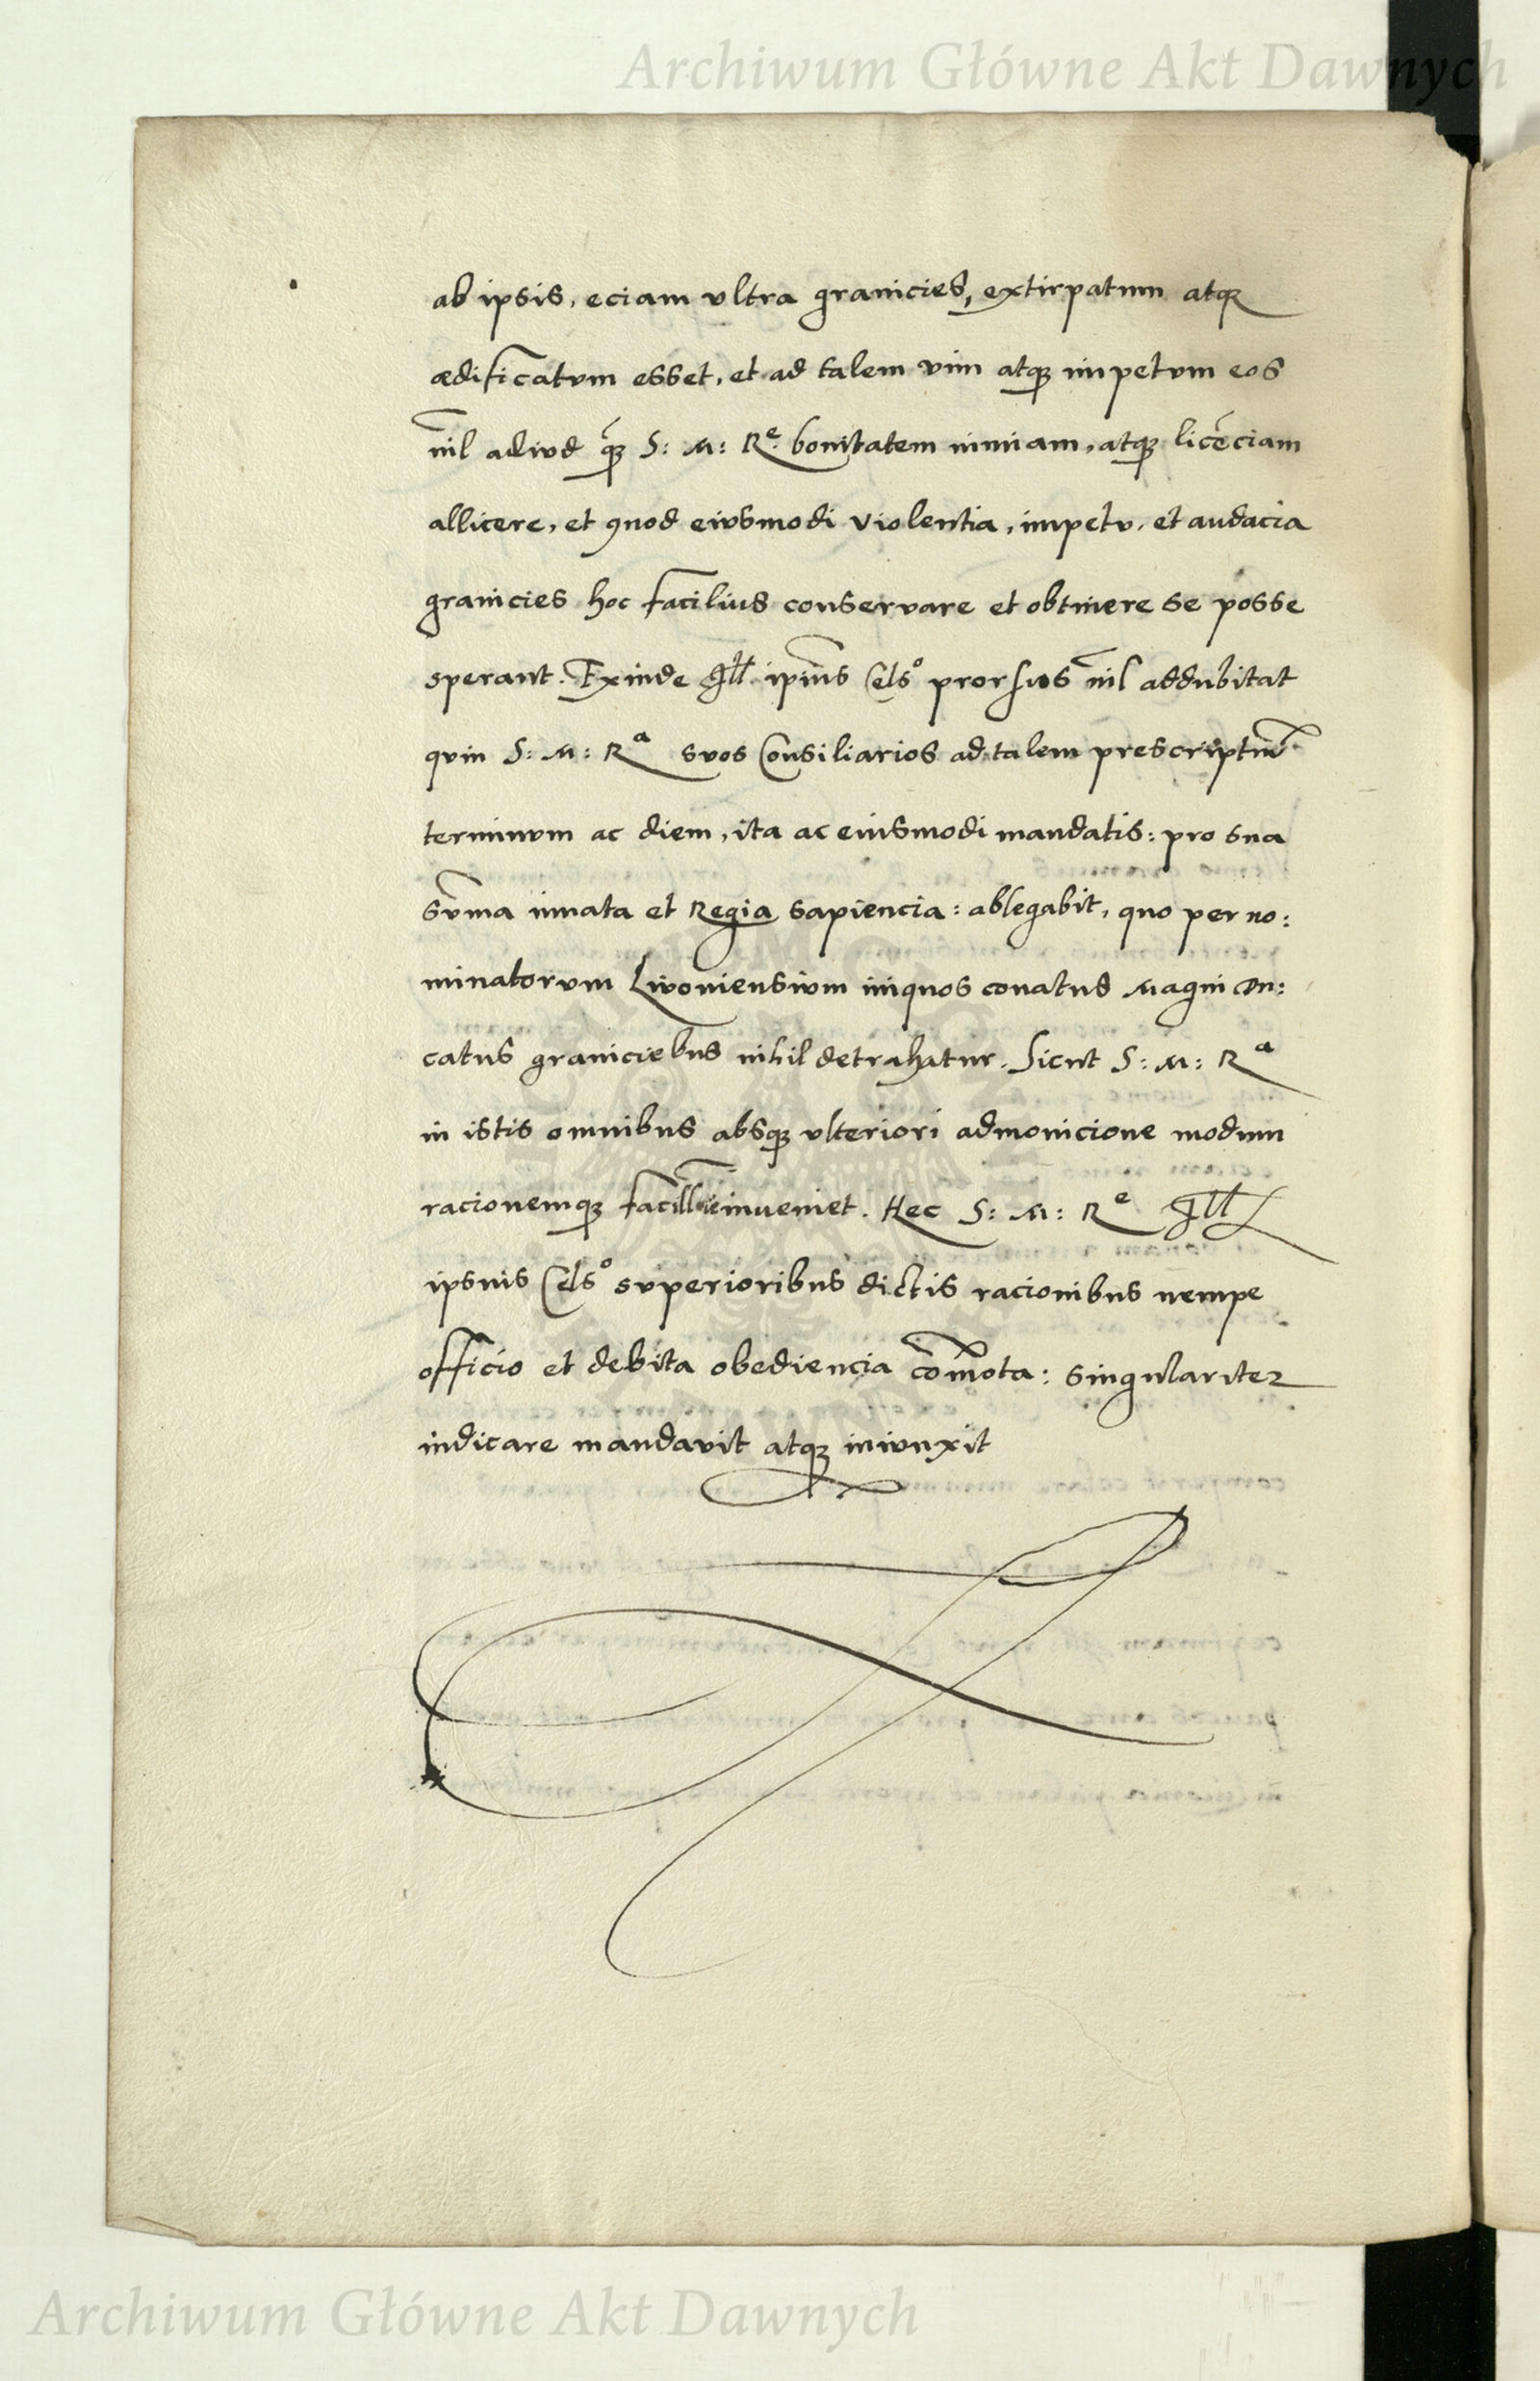 Archiwum Główne Akt Dawnych
ab ipsis, eciam vltra granicies, extirpatum atqꝫ
ædificatvm esset, et ad talem vim atqꝫ impetvm eos
nil alivd qꝫ S: M: Rᵉ bonitatem nimiam, atqꝫ licēciam
allicere, et quod eivsmodi violentia, impetv, et audacia
granicies hoc facilius conservare et obtinere se posse
sperant. Exinde Ill. ipius Celsº prorsus nil addubitat
qvin S: M: Rᵃ svos Consiliarios ad talem prescriptū
terminvm ac diem, ita ac eiusmodi mandatis: pro sua
sv̄ma innata et Regia sapiencia: ablegabit, quo per no:
minatorvm Livoniensivm iniquos conatus Magni Du:
catus graniciebus nihil detrahatur. Sicut S: M: Rᵃ
in istis omnibus absqꝫ vlteriori admonicione modum
racionemqꝫ facill inueniet. Hec S: M: Rᵉ Ill
ipsius Celsº svperioribus dictis racionibus nempe
officio et debita obediencia com̄ota: singulariter
indicare mandavit atqꝫ inivnxit
Archiwum Główne Akt Dawnych